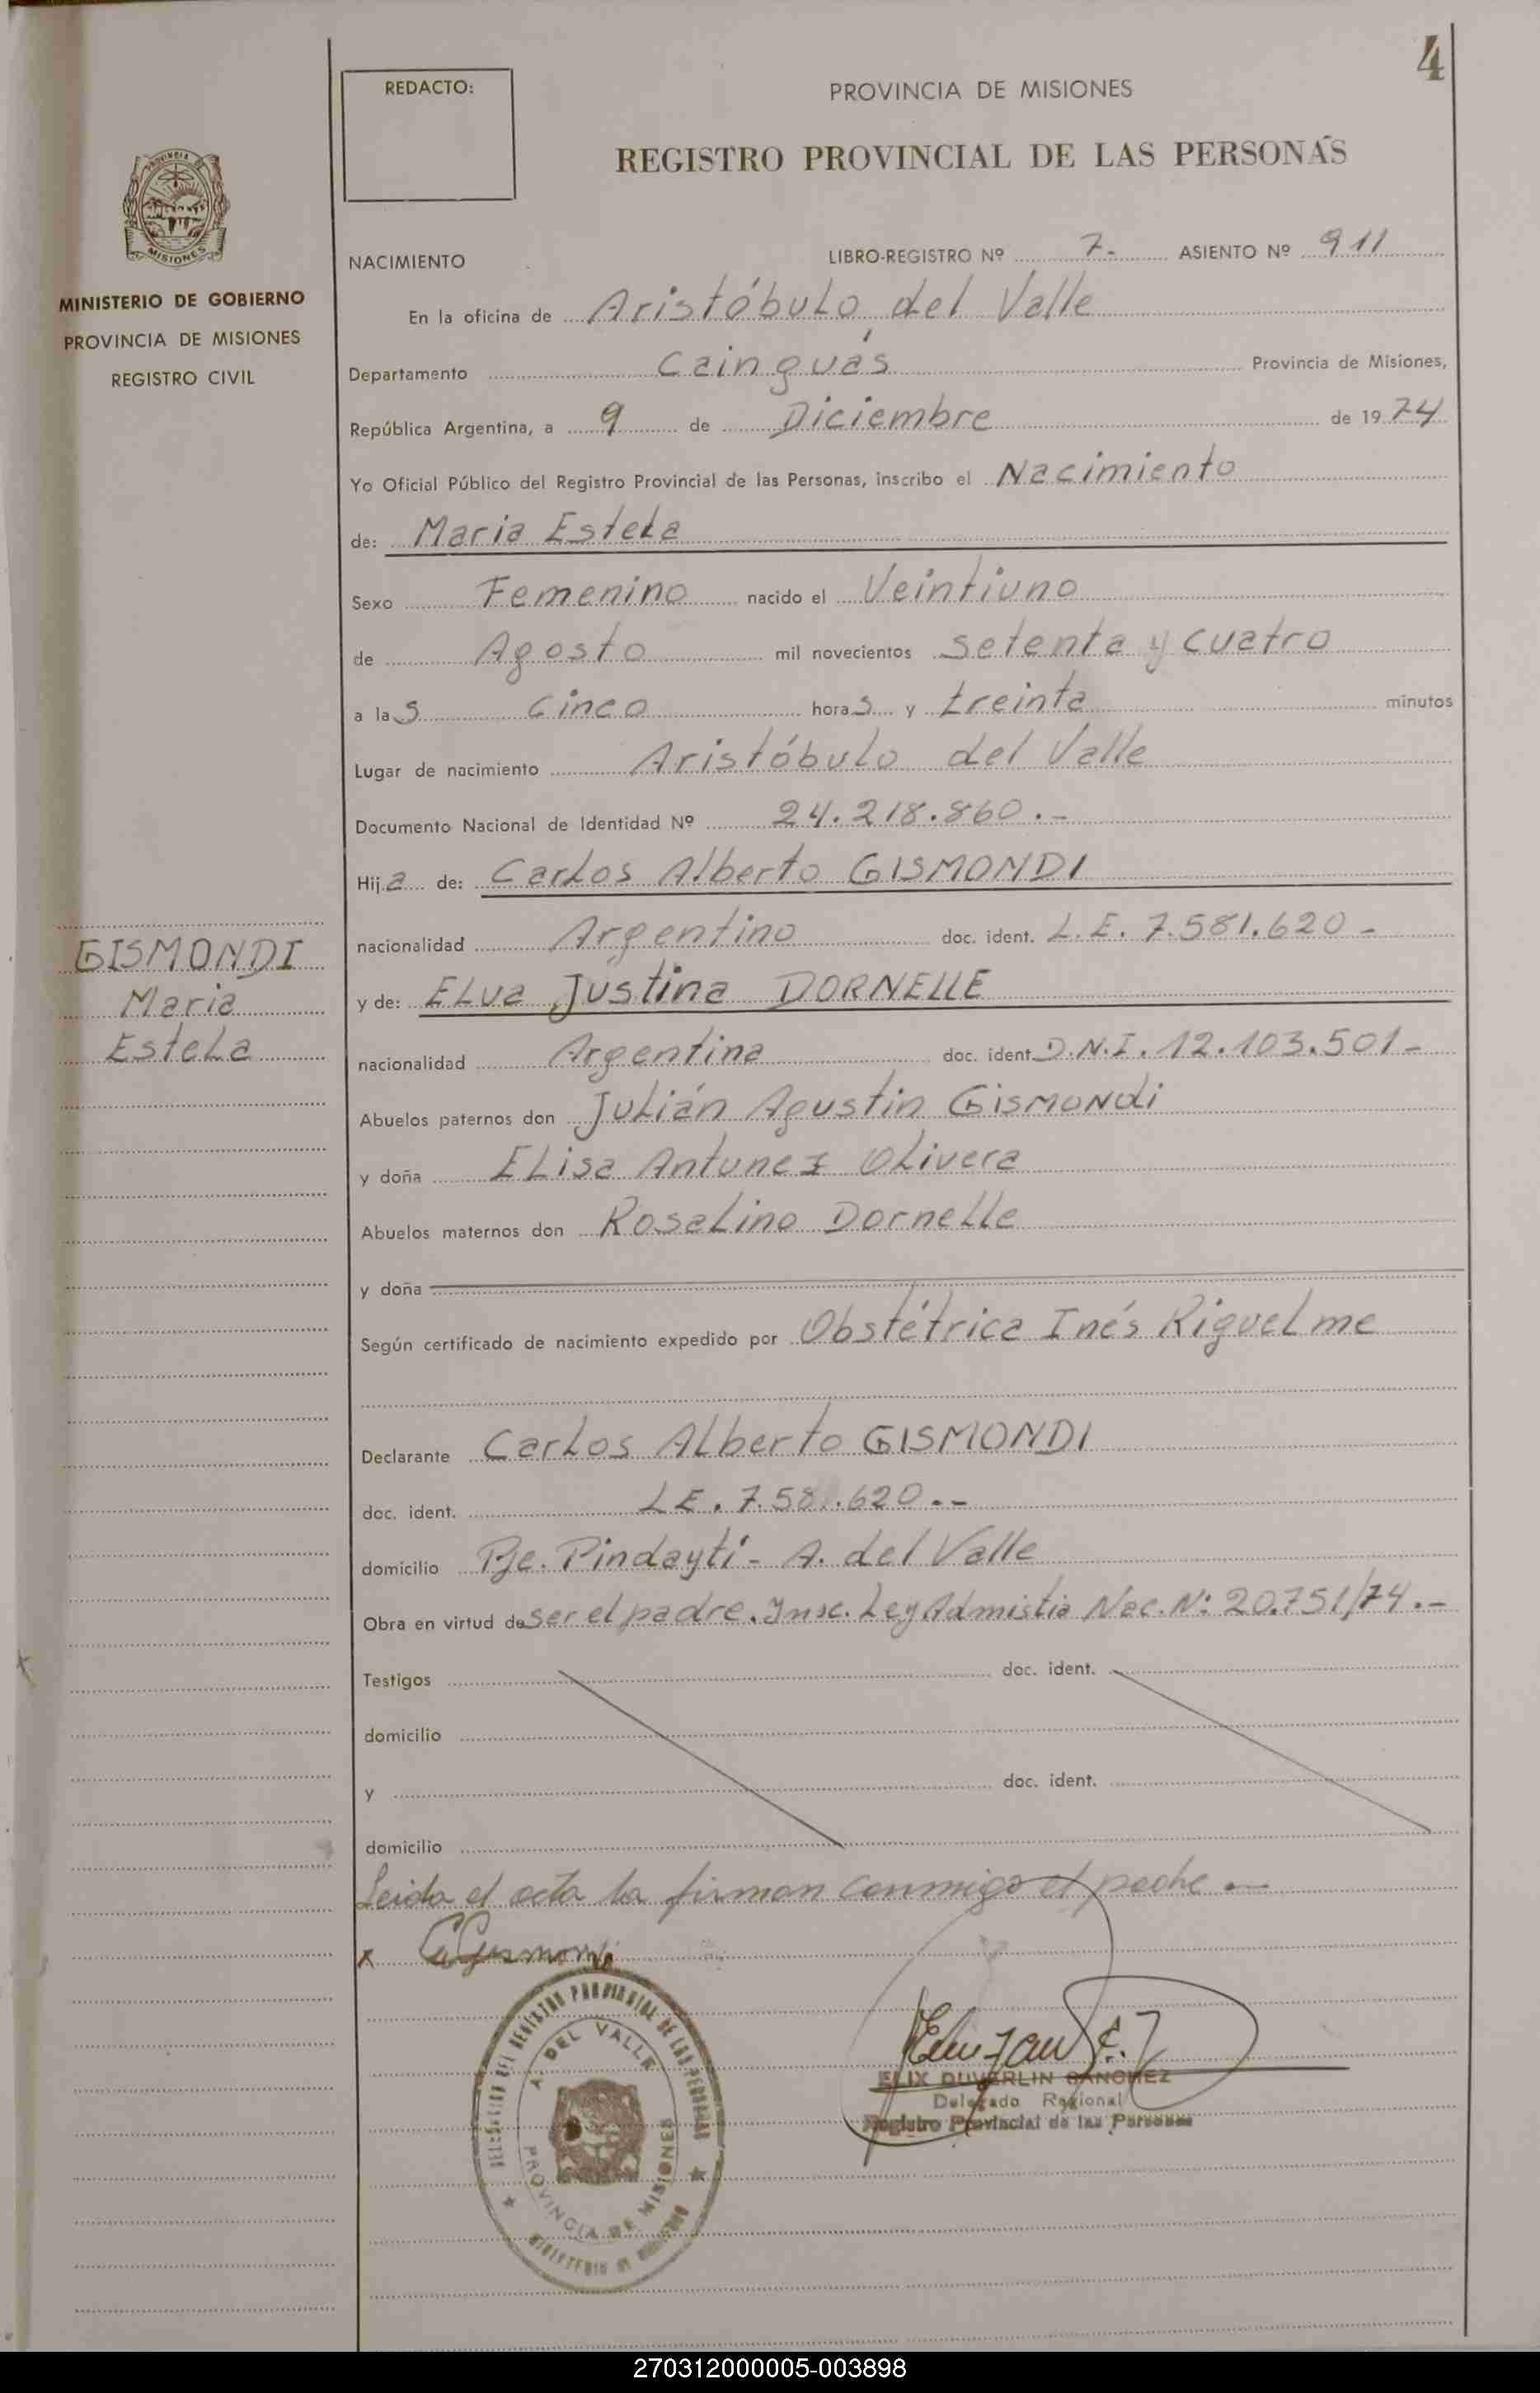 4
REDACTO:
PROVINCIA DE MISIONES
REGISTRO PROVINCIAL DE LAS PERSONAS
PROVINCIA DE
MISIONES
MINISTERIO DE GOBIERNO
PROVINCIA DE MISIONES
REGISTRO CIVIL
NACIMIENTO
LIBRO-REGISTRO Nº 7.- ASIENTO Nº 911
En la oficina de Aristóbulo del Valle
Departamento Cainguás Provincia de Misiones,
República Argentina, a 9 de Diciembre de 1974
Yo Oficial Público del Registro Provincial de las Personas, inscribo el Nacimiento
de: Maria Estela
Sexo Femenino nacido el Veintiuno
de Agosto mil novecientos setenta y cuatro
a las cinco horas y treinta minutos
Lugar de nacimiento Aristóbulo del Valle
Documento Nacional de Identidad Nº 24.218.860.-
Hija de: Carlos Alberto GISMONDI
nacionalidad Argentino doc. ident. L.E. 7.581.620-
GISMONDI
Maria
Estela
y de: Elva Justina DORNELLE
nacionalidad Argentina doc. ident D.N.I. 12.103.501-
Abuelos paternos don Julián Agustin Gismondi
y doña Elisa Antunez Olivera
Abuelos maternos don Rosalino Dornelle
y doña
Según certificado de nacimiento expedido por Obstétrica Inés Riquelme
Declarante Carlos Alberto GISMONDI
doc. ident. LE. 7.581.620.-
domicilio Pje. Pindaytí - A. del Valle
Obra en virtud de ser el padre. Insc. Ley Admistia Nac. Nº 20.751/74.-
Testigos doc. ident.
domicilio
y doc. ident.
domicilio
Leida el acta la firman conmigo el padre
x CGismondi
DELEGACION DEL REGISTRO PROVINCIAL DE LAS PERSONAS
A. DEL VALLE
PROVINCIA DE MISIONES
MINISTERIO DE GOBIERNO
ELIX DUVERLIN SANCHEZ
Delegado Regional
Registro Provincial de las Personas
270312000005-003898